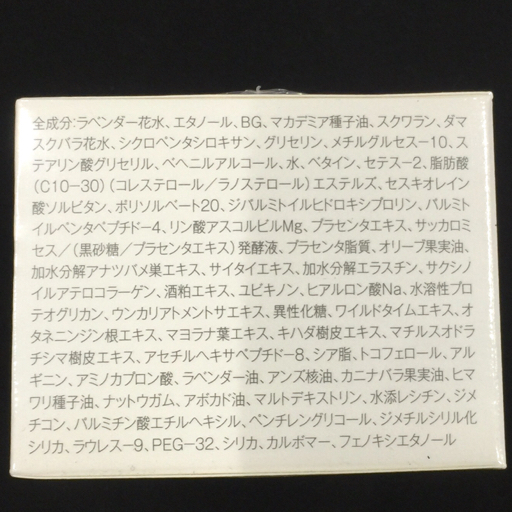 全成分:ラベンダー花水、エタノール、BG、マカデミア種子油、スクワラン、ダマ
スクバラ花水、シクロペンタシロキサン、グリセリン、メチルグルセス-10、ス
テアリン酸グリセリル、ベヘニルアルコール、水、ベタイン、セテス-2、脂肪酸
(C10-30)(コレステロール/ラノステロール)エステルズ、セスキオレイン
酸ソルビタン、ポリソルベート20、ジパルミトイルヒドロキシプロリン、パルミト
イルペンタペプチド-4、リン酸アスコルビルMg、プラセンタエキス、サッカロミ
セス/(黒砂糖/プラセンタエキス)発酵液、プラセンタ脂質、オリーブ果実油、
加水分解アナツバメ巣エキス、サイタイエキス、加水分解エラスチン、サクシノ
イルアテロコラーゲン、酒粕エキス、ユビキノン、ヒアルロン酸Na、水溶性プロ
テオグリカン、ウンカリアトメントサエキス、異性化糖、ワイルドタイムエキス、オ
タネニンジン根エキス、マヨラナ葉エキス、キハダ樹皮エキス、マチルスオドラ
チシマ樹皮エキス、アセチルヘキサペプチド-8、シア脂、トコフェロール、アル
ギニン、アミノカプロン酸、ラベンダー油、アンズ核油、カニナバラ果実油、ヒマ
ワリ種子油、ナットウガム、アボカド油、マルトデキストリン、水添レシチン、ジメ
チコン、パルミチン酸エチルヘキシル、ペンチレングリコール、ジメチルシリル化
シリカ、ラウレス-9、PEG-32、シリカ、カルボマー、フェノキシエタノール